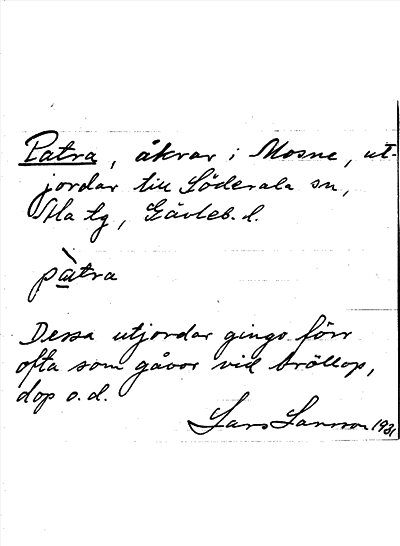 Patra, åkrar i Mosne, ut-
jordar till Söderala sn,
Ala tg, Gävleb. l.
pàtra
Dessa utjordar gingo förr
ofta som gåvor vid bröllop,
dop o.d.
Lars Larsson 1931